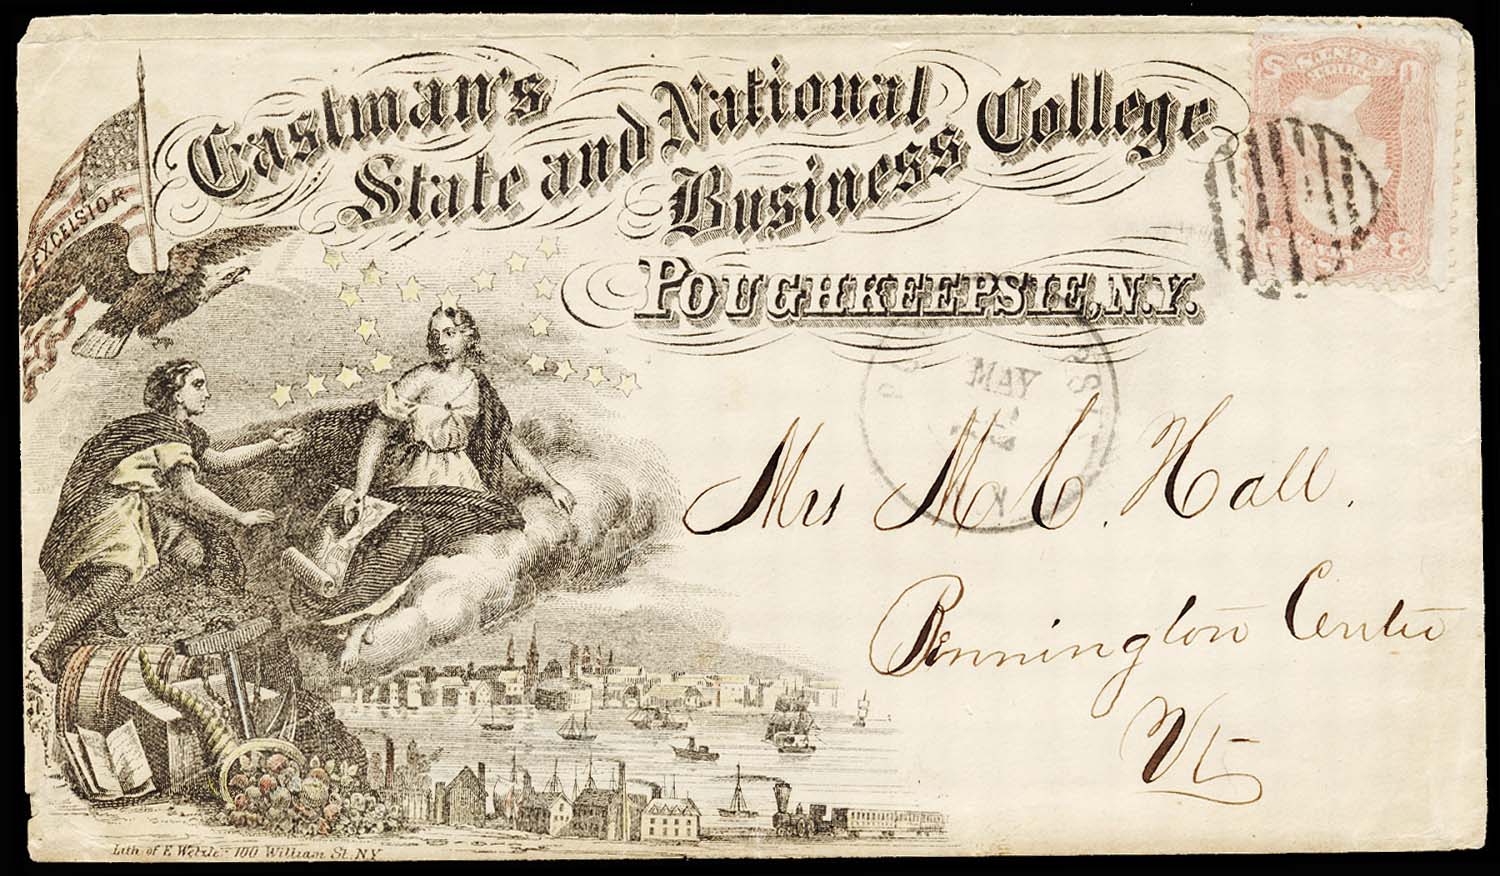 Eastman's
State and National
Business College
POUGHKEEPSIE, N.Y.
EXCELSIOR
3
MAY
Mrs M. C. Hall.
Bennington Centre
Vt
Lith of E 100 William St. N.Y.